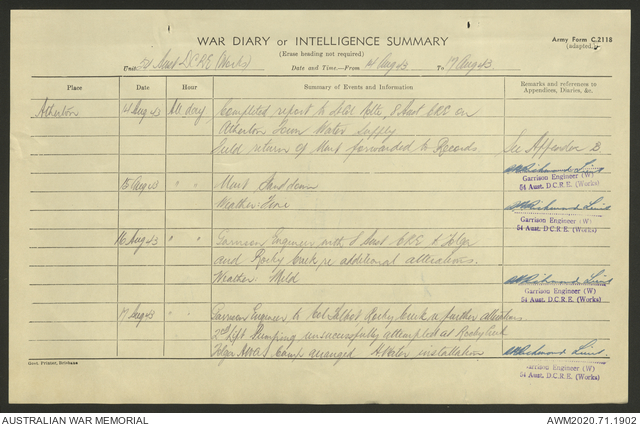 WAR DIARY or INTELLIGENCE SUMMARY
Army Form C.2118
(adapted)
(Erase heading not required)
Unit: 54 Aust D.C.R.E. (Works)
Date and Time.—From 14 Aug 43 To 17 Aug 43.
Place
Date
Hour
Summary of Events and Information
Remarks and references to Appendices, Diaries, &c.
Atherton 14 Aug 43 All day Completed report to Lt Col 8 Aust CRE on
Atherton Town Water Supply
Field return of Unit forwarded to Records See Appendix B
Garrison Engineer (W)
54 Aust. D.C.R.E. (Works)
15 Aug 43 " " Unit
Weather: Fine
Garrison Engineer (W)
54 Aust. D.C.R.E. (Works)
16 Aug 43 " " Garrison Engineer with 8 Aust CRE to Tolga
and Rocky Creek re additional alterations.
Weather: Mild
Garrison Engineer (W)
54 Aust. D.C.R.E. (Works)
17 Aug 43 " " Garrison Engineer to Rocky Creek re further alterations
2nd lift pumping unsuccessfully attempted at Rocky Creek
Tolga Area. Camp arranged. Water installation
Garrison Engineer (W)
54 Aust. D.C.R.E. (Works)
Govt. Printer, Brisbane
AUSTRALIAN WAR MEMORIAL
AWM2020.71.1902